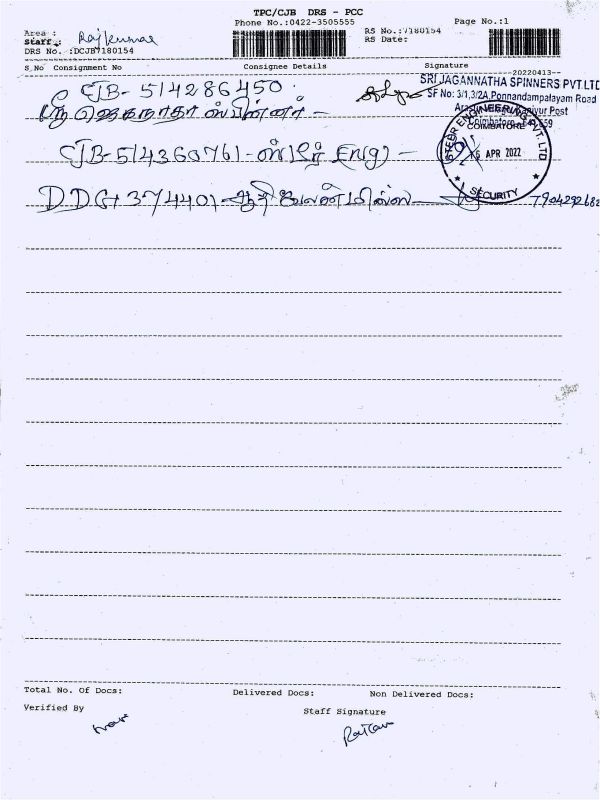 TPC/CJB DRS - PCC
Phone No.:0422-3505555
Page No.:1
Area :
Staff : Rajkumar
DRS No. :DCJB7180154
RS No.:7180154
RS Date:
S_No Consignment No Consignee Details Signature
--20220413--
CJB- 514286450
ஸ்ரீ ஜெகநாதா ஸ்பின்னர் -
SRI JAGANNATHA SPINNERS PVT.LTD
SF No: 3/1,3/2A,Ponnandampalayam Road
Post
Coimbatore
CJB-514360761- ஸ்டீர் Eng -
STEER ENGINEERING PVT. LTD
COIMBATORE
APR 2022
SECURITY
DDG 374401 -
Total No. Of Docs: Delivered Docs: Non Delivered Docs:
Verified By
Staff Signature